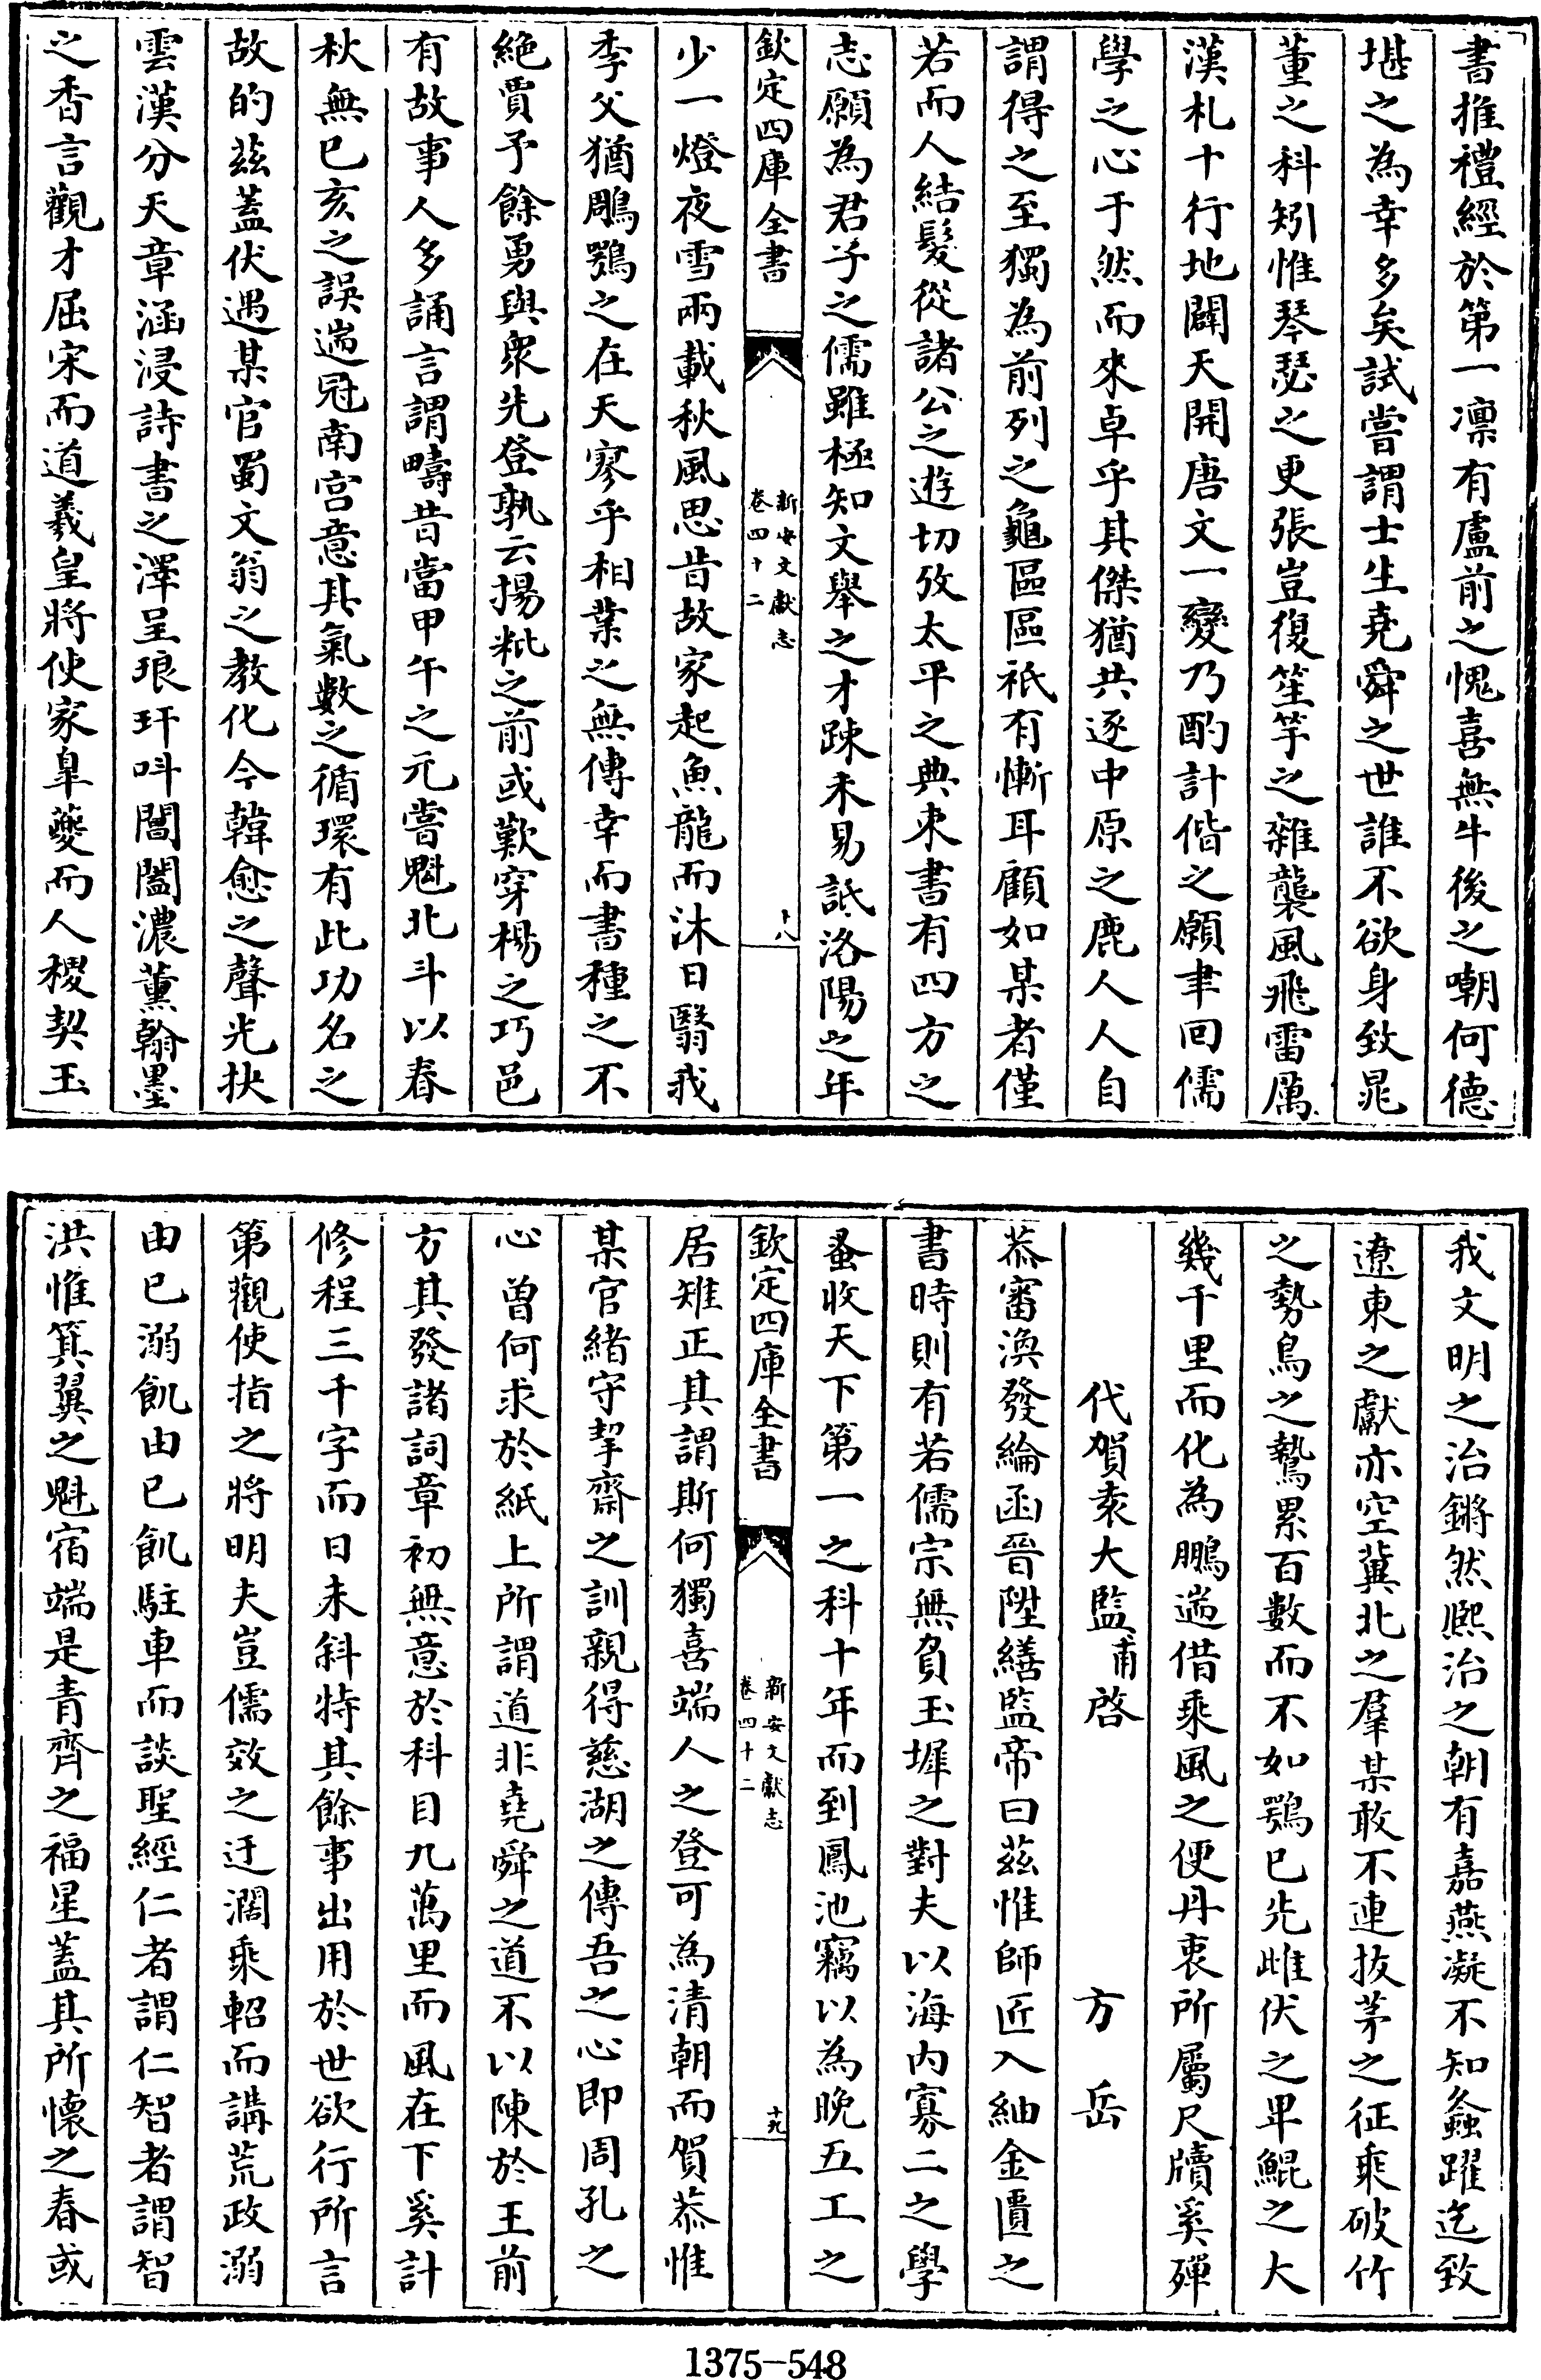 書推禮經於第一凛有盧前之愧喜無牛後之嘲何德
堪之為幸多矣試嘗謂士生堯舜之世誰不欲身致晁
董之科矧惟琴瑟之更張豈復笙竽之雜襲風飛雷厲
漢札十行地闢天開唐文一變乃酌計偕之願聿回儒
學之心于然而來卓乎其傑猶共逐中原之鹿人人自
謂得之至獨為前列之龜區區祇有慚耳顧如某者僅
若而人結髮從諸公之遊切攷太平之典束書有四方之
志願為君子之儒雖極知文舉之才疎未易詆洛陽之年
欽定四庫全書
新安文獻志
卷四十二
十八
少一燈夜雪兩載秋風思昔故家起魚龍而沐日翳我
季父猶鵰鶚之在天寥乎相業之無傳幸而書種之不
絶賈予餘勇與衆先登孰云揚粃之前或歎穿楊之巧邑
有故事人多誦言謂疇昔當甲午之元嘗魁北斗以春
秋無已亥之誤遄冠南宫意其氣數之循環有此功名之
故的茲蓋伏遇某官蜀文翁之教化今韓愈之聲光抉
雲漢分天章涵浸詩書之澤呈琅玕呌閶闔濃薰翰墨
之香言觀才屈宋而道羲皇將使家臯夔而人稷契玉
我文明之治鏘然熈洽之朝有嘉燕凝不知螽躍迄致
遼東之獻亦空冀北之羣某敢不連拔茅之征乘破竹
之勢鳥之鷙累百數而不如鶚已先雌伏之卑鯤之大
幾千里而化為鵬遄借乘風之便丹衷所屬尺牘奚殫
代賀袁大監甫啓
方岳
恭審渙發綸函晉陞繕監帝曰茲惟師匠入紬金匱之
書時則有若儒宗無負玉墀之對夫以海内寡二之學
蚤收天下第一之科十年而到鳳池竊以為晩五工之
欽定四庫全書
新安文獻志
卷四十二
十九
居雉正其謂斯何獨喜端人之登可為清朝而賀恭惟
某官緒守挈齋之訓親得慈湖之傳吾之心即周孔之
心曽何求於紙上所謂道非堯舜之道不以陳於王前
方其發諸詞章初無意於科目九萬里而風在下奚計
修程三千字而日未斜特其餘事出用於世欲行所言
第觀使指之將明夫豈儒效之迂濶乘軺而講荒政溺
由已溺飢由已飢駐車而談聖經仁者謂仁智者謂智
洪惟箕翼之魁宿端是青齊之福星蓋其所懷之春或
1375-548